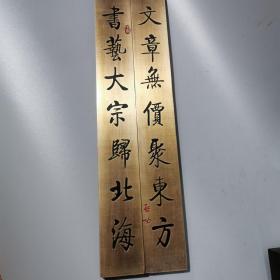 文章無價聚東方
書藝大宗歸北海